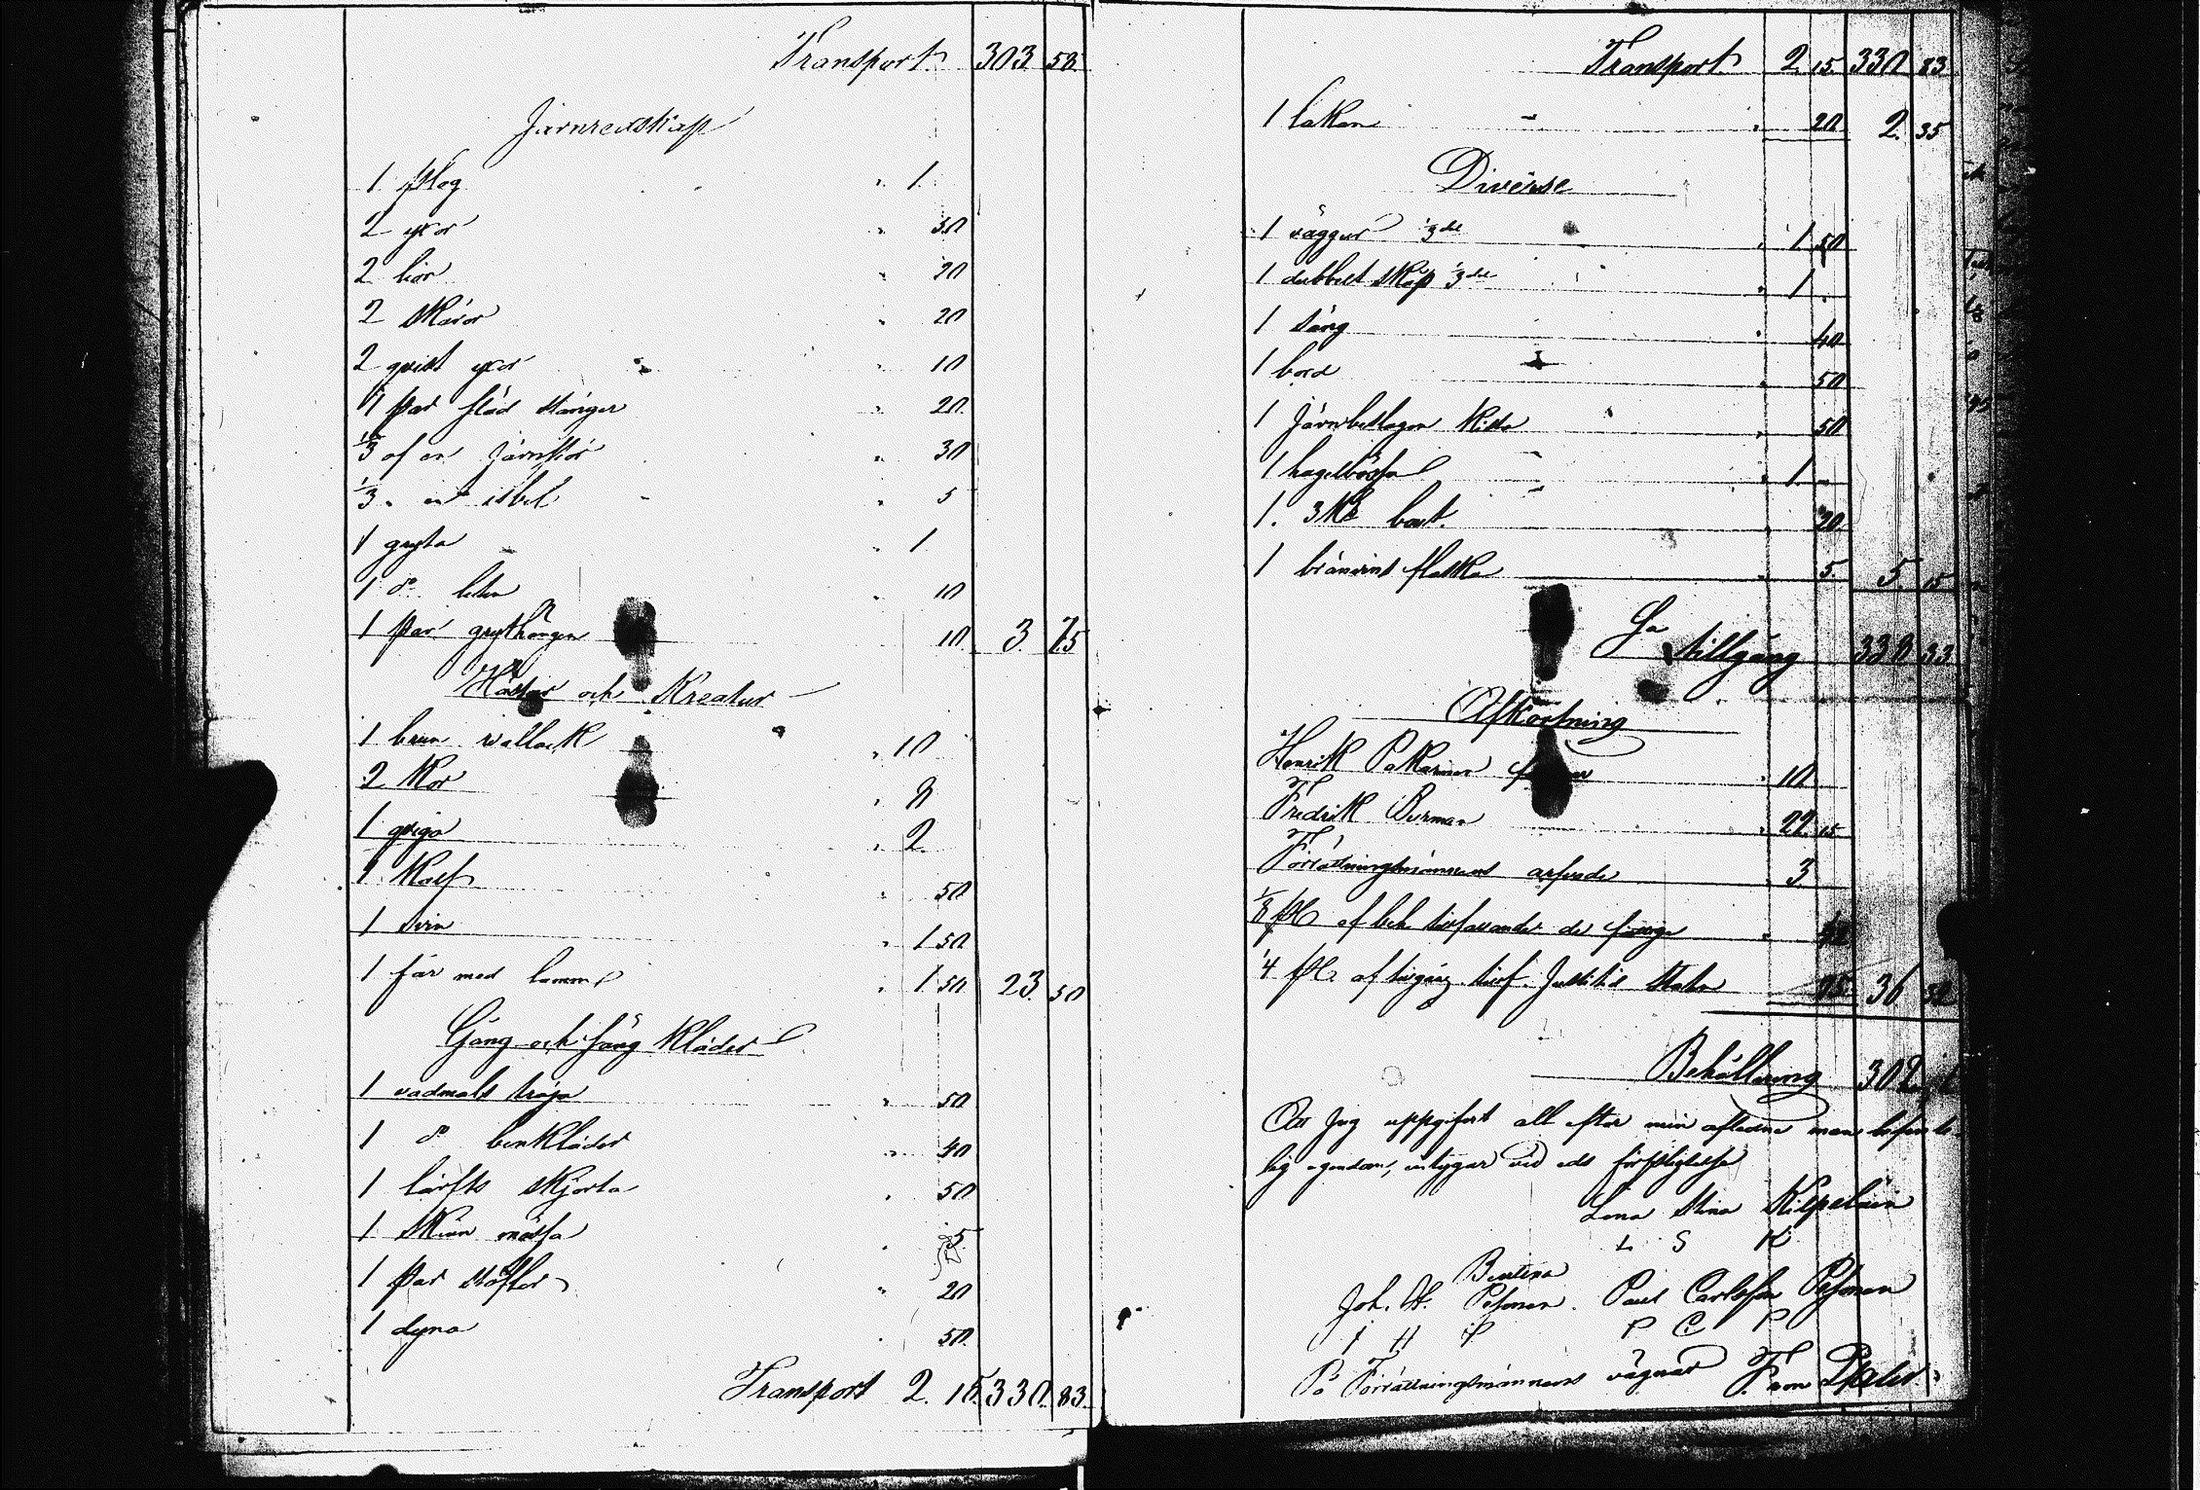 Transport 303. 58.
Järnredskap
1 plog " 1.
2 yxor " 30
2 liar " 20
2 skäror " 20
2 qvist yxor " 10
1 par slädstänger " 20.
1/3 af en järnstör " 30
1/3 " en isbil " 5
1 gryta " 1
1 do liten " 10
1 par grythängen 10. 3. 75
Hästar och Kreatur
1 brun wallack " 10
2 Kor " 8
1 qviga " 2.
1 Kalf " 50
1 svin " 1 50
1 får med lamm " 1 50 23. 50
Gång och säng Kläder
1 vadmals tröja " 50
1 do benkläder " 40
1 lärfts skjorta " 50
1 skinn mössa " 5
1 par stöflor " 20
1 dyna " 50.
Transport 2. 15. 330. 83.
Transport 2. 15. 330 83
1 lakan " 20 2. 35
Diverse
1 väggur 1/3 del " 1 50
1 dubbelt skåp 1/3 del " 1 "
1 säng " 40
1 bord " 50
1 Järnbeslagen Kista " 50
1 hagelbössa " 1 "
1. båt. " 20.
1 bränvins flaska " 5. 5 15
Sa tillgång 338 33
Afkortning
Henrik Pakarinen " 10
Fredrik Burman " 22. 15
Förrättningsmännens arfvode " 3
1/8 pC af beh. tillfallande de fattige "
1/4 pC. af tillgång. tillf. Justitiæ Stater 36 52
Behållning 302
Att Jag uppgifvit all efter min afledne man befint
lig egendom, intygar vid eds förpligtelse
Lena Stina Kilpeläin
L S K
Joh. H. Pesonen. Paul Carlsson Pesonen
J H P P C P
På Förrättningsmännens vägnar F. von Pfaler.